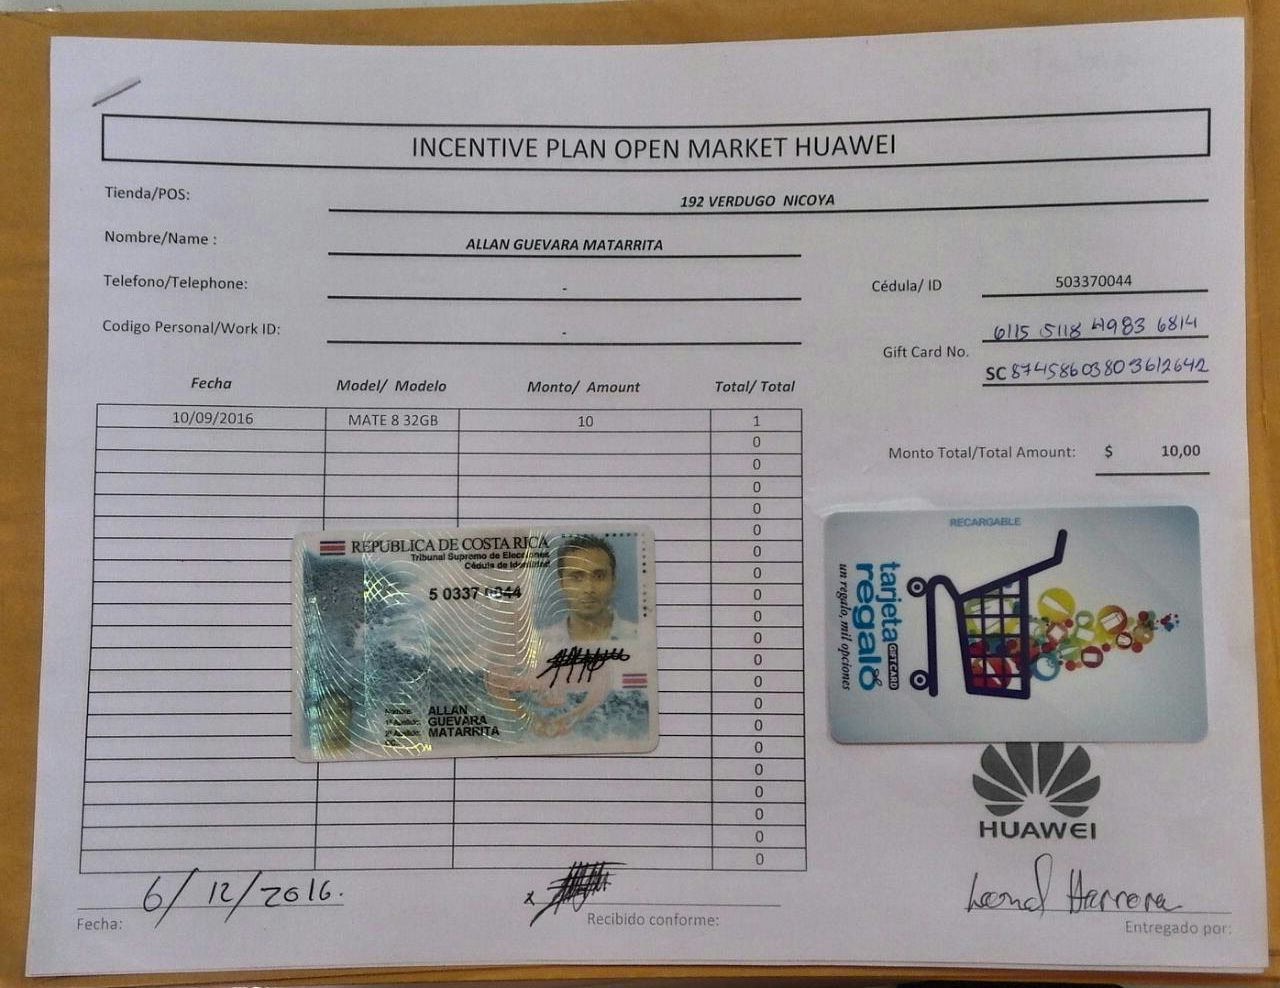 INCENTIVE PLAN OPEN MARKET HUAWEI
Tienda/POS: 192 VERDUGO NICOYA
Nombre/Name : ALLAN GUEVARA MATARRITA
Telefono/Telephone: - Cédula/ ID 503370044
Codigo Personal/Work ID: -
Gift Card No. 6115 5118 4983 6814
SC 8745860380 3612642
Fecha Model/ Modelo Monto/ Amount Total/ Total
10/09/2016 MATE 8 32GB 10 1
0
0
0
0
0
0
0
0
0
0
0
0
0
0
0
0
0
0
0
0
Monto Total/Total Amount: $ 10,00
REPUBLICA DE COSTA RICA
Tribunal Supremo de Elecciones
Cédula de Identidad
5 0337 0044
Nombre: ALLAN
1° Apellido: GUEVARA
2° Apellido: MATARRITA
RECARGABLE
tarjeta
regalo
GIFT CARD
un regalo, mil opciones
HUAWEI
6/12/2016.
x
Herrera
Fecha: Recibido conforme: Entregado por: